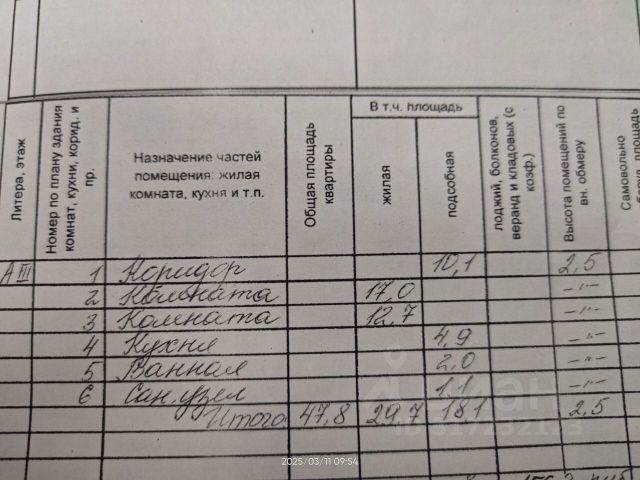 Литера, этаж
Номер по плану здания комнат, кухни, корид. и пр.
Назначение частей помещения: жилая комната, кухня и т.п.
Общая площадь квартиры
В т.ч. площадь
жилая
подсобная
лоджий, балконов, веранд и кладовых (с коэф.)
Высота помещений по вн. обмеру
Самовольно
А III 1 Коридор 10,1 2,5
2 Комната 17,0 -"-
3 Комната 12,7 -"-
4 Кухня 4,9 -"-
5 Ванная 2,0 -"-
6 Сан. узел 1,1 -"-
Итого 47,8 29,7 18,1 2,5
2025/03/11 09:54